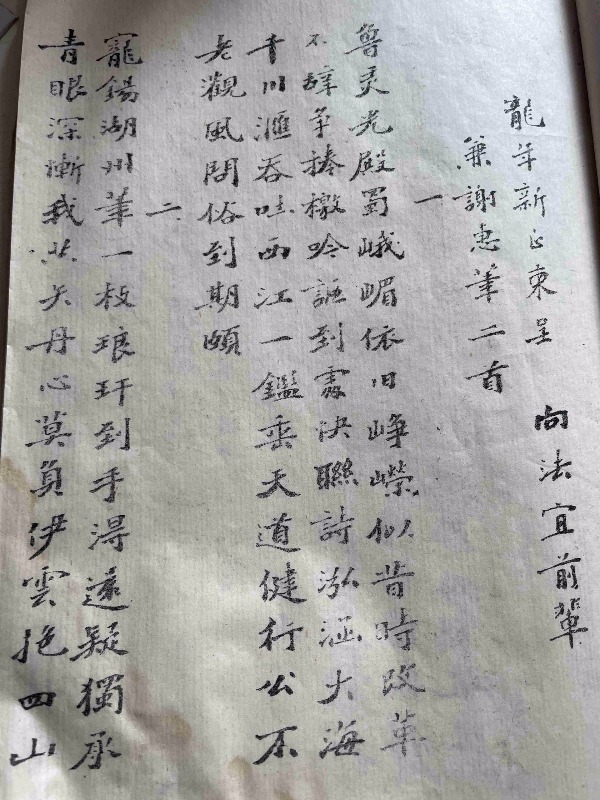 龍年新正柬呈 向法宜前輩
兼謝惠筆二首
一
魯灵光殿蜀峨嵋依旧崢嶸似昔時改革
不辞争捧檄吟謳到處决聯詩泓涵大海
千川滙吞吐西江一鑑垂天道健行公不
老觀風問俗到期頤
二
寵錫湖州筆一枝琅玕到手淂疑獨承
青眼深慚我共矢丹心莫負伊雲四山